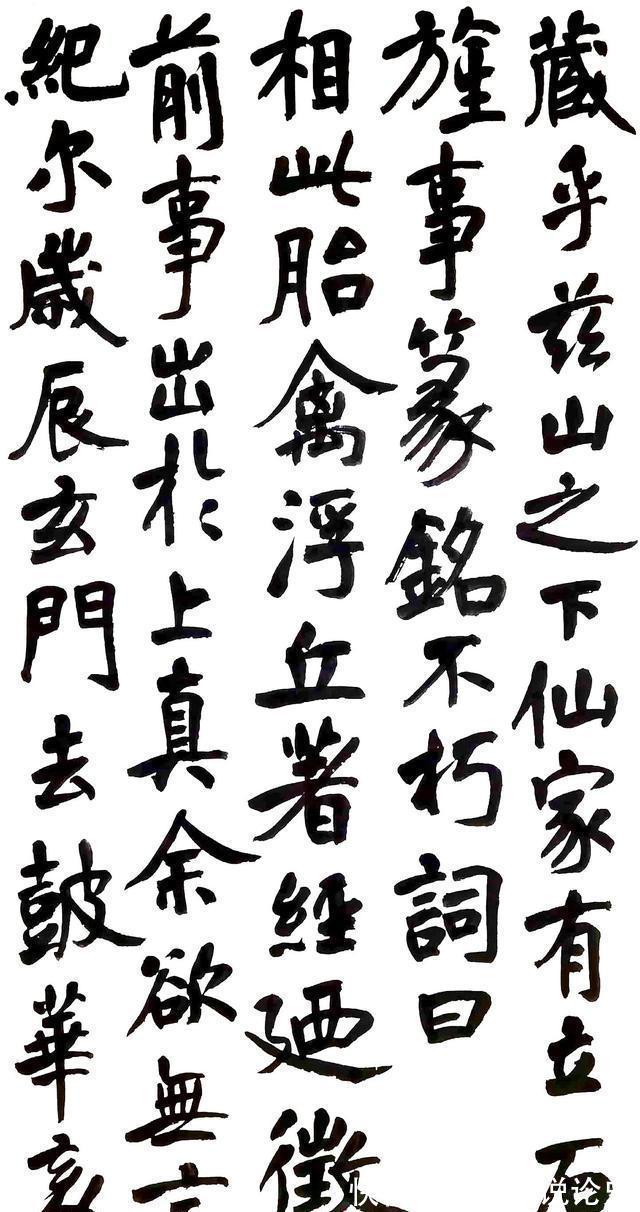 藏乎兹山之下仙家有立
旌事篆銘不朽詞曰
相此胎禽浮丘著經廼徵
前事出於上真余欲無
紀尔歲辰玄門去鼓華
说论